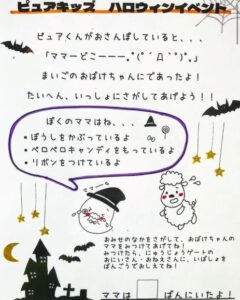 ピュアキッズ ハロウィンイベント
ピュアくんがおさんぽしていると、、、
「ママーどこーーー。゚(゚´Д｀゚)゚。」
まいごのおばけちゃんにであったよ！
たいへん、いっしょにさがしてあげよう！！
ぼくのママはね、、、
・ぼうしをかぶっているよ
・ペロペロキャンディをもっているよ
・リボンをつけているよ
おみせのなかをさがして、おばけちゃんの
ママをみつけてあげてね！
みつけたら、にゅうじょうゲートの
おにいさん・おねえさんに、いばしょを
ばんごうでおしえてね！
ママは □ ばんにいたよ！